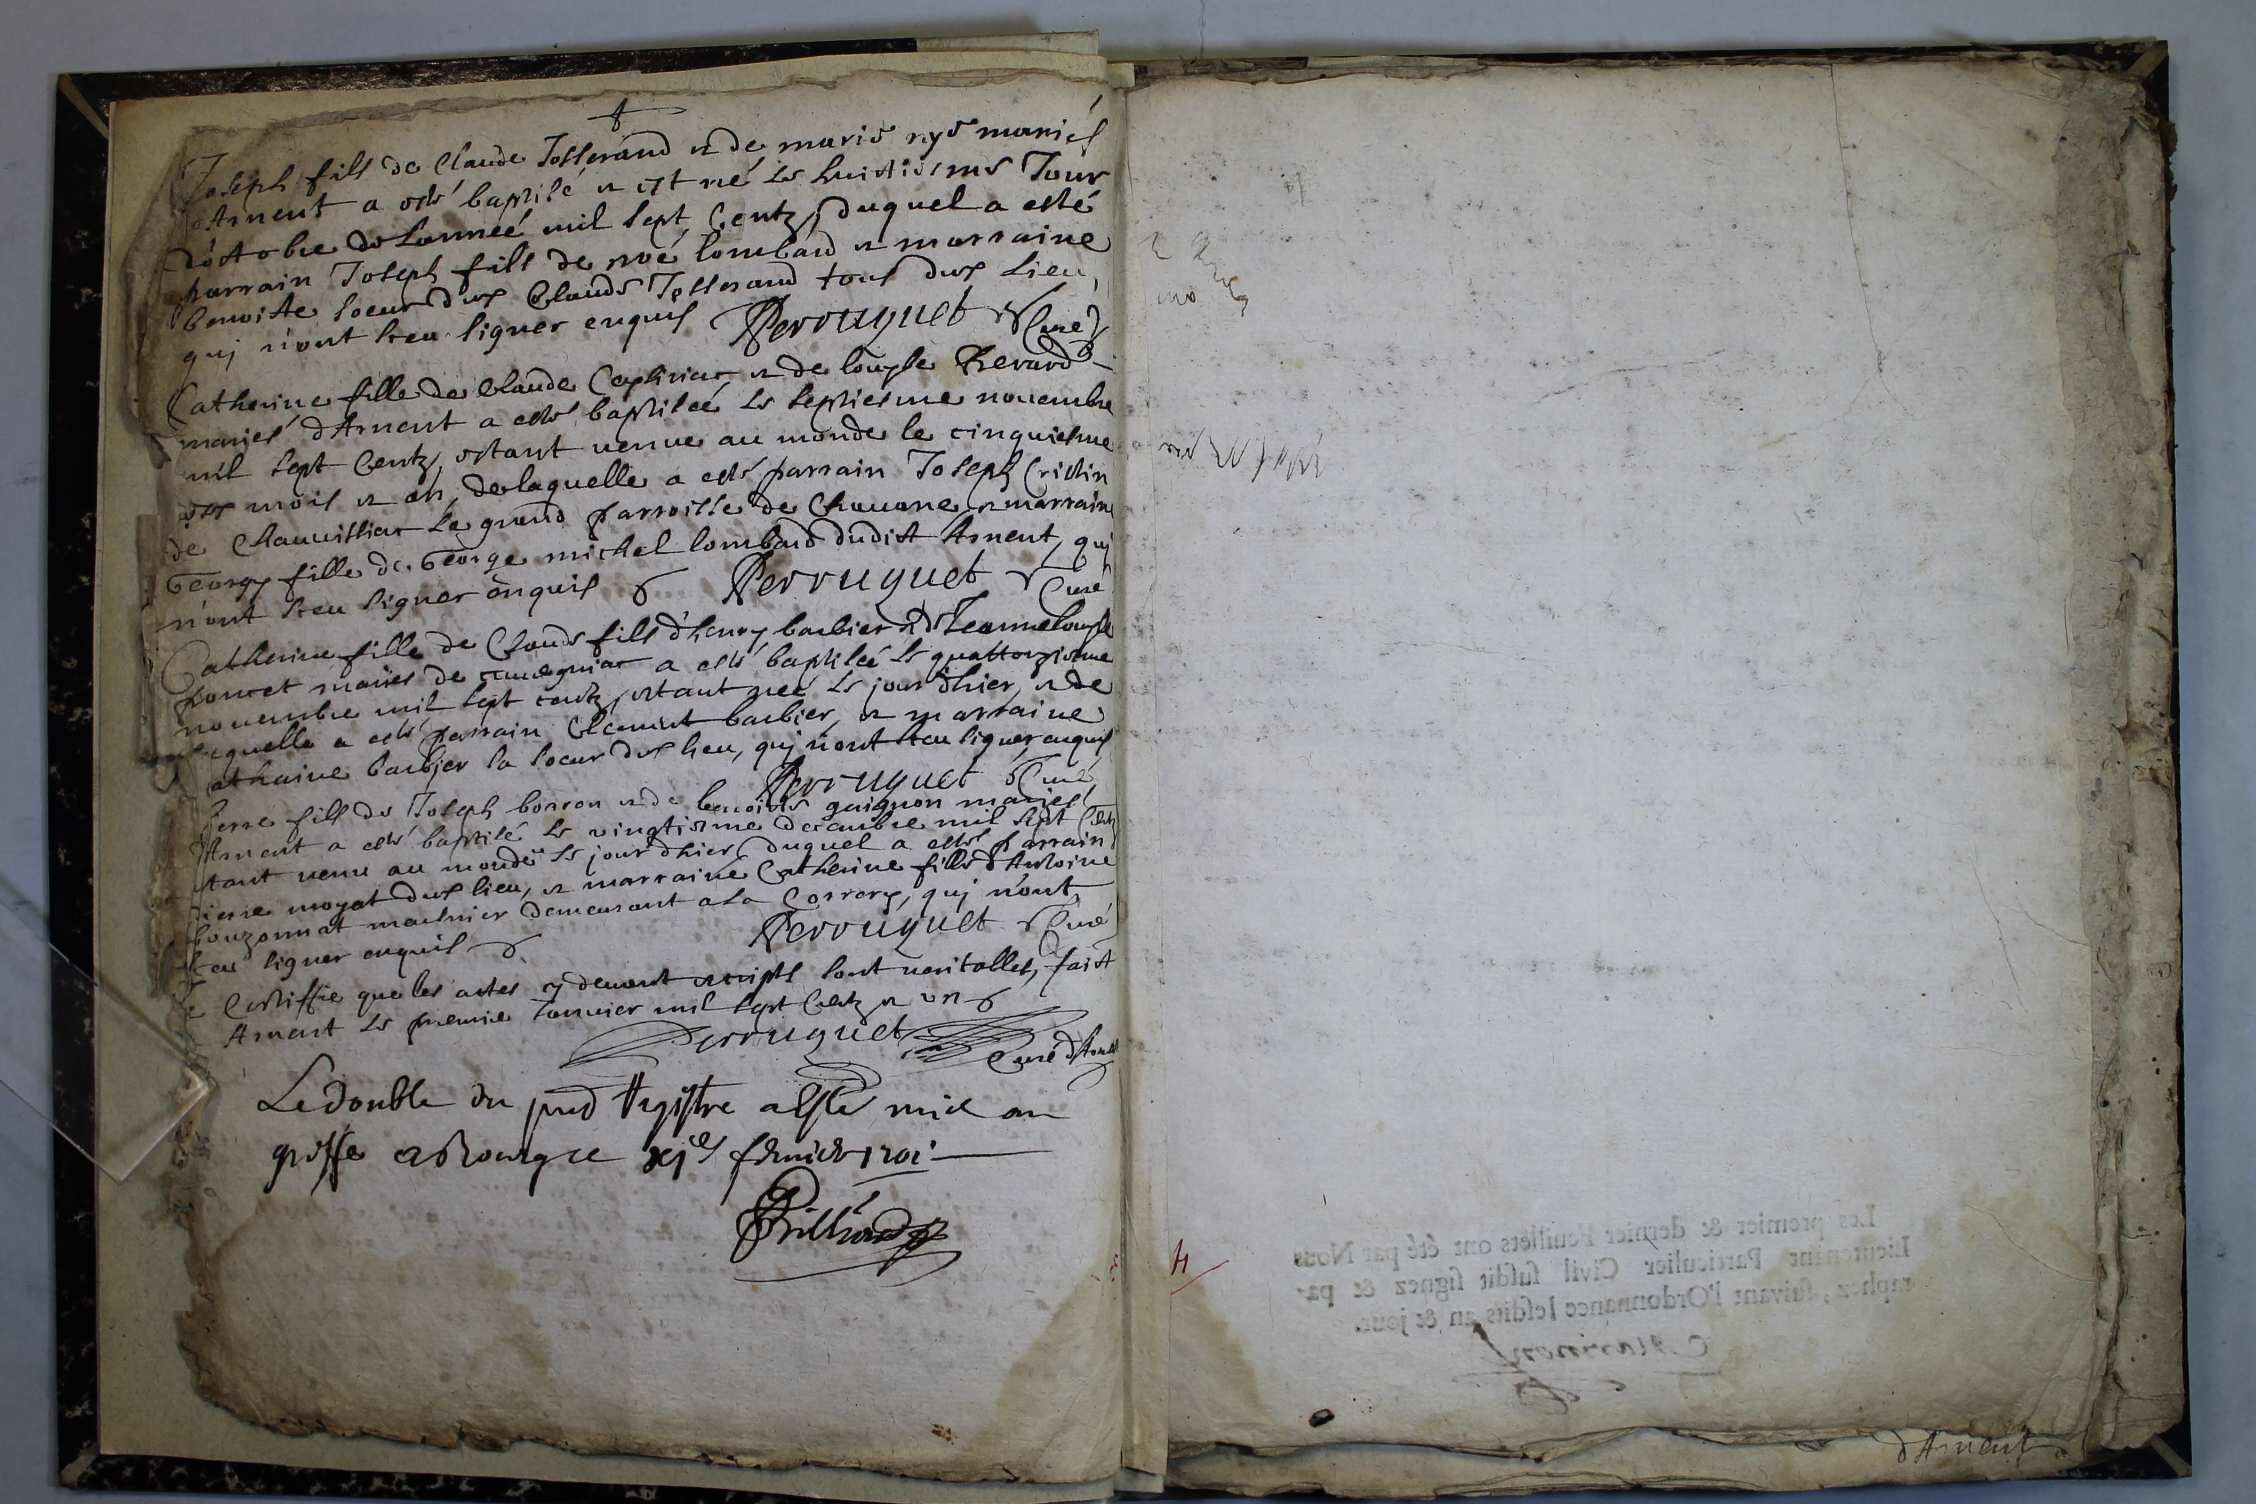 Joseph fils de Claude Josserand et de marie nye mariés
d'Arnent a esté baptisé et est né le huictiesme Jour
d'octobre de L'année mil sept Centz, duquel a esté
parrain Joseph fils de noé lombard et marraine
benoiste soeur dud Claude Josserand tous dud Lieu,
qui n'ont sceu signer enquis Perruquet Curé
Catherine fille de Claude et de
mariés d'Arnent a esté baptisée le septiesme novembre
mil sept Centz, estant venue au monde le cinquiesme
des mois et an, de laquelle a esté parrain Joseph Cristin
de le grand parroisse de et marraine
Georgy fille de George michel lombard dudit Arnent, qui
n'ont sceu signer enquis Perruquet Curé
Catherine fille de Claude fils d'henry barbier et de Jeanne
poncet mariés de a esté baptisée le quattorziesme
novembre mil sept centz, estant née le jour d'hier, et de
laquelle a esté parrain Clément barbier, et marraine
barbier sa soeur dud lieu, qui n'ont sceu signer enquis
Perruquet Curé
fils de Joseph borron et de benoiste guignon mariés
d'Arnent a esté baptisé le vingtiesme décembre mil sept Centz
estant venu au monde le jour d'hier, duquel a esté parrain
pierre moyat dud lieu, et marraine Catherine fille d'Antoine
bouzonnat demeurant a La Correry, qui n'ont
sceu signer enquis Perruquet Curé
Je Certiffie que les actes cy devant escripts sont veritables, faict
Arnent le premier Janvier mil sept Centz et un
Perruquet Curé d'Arnent
Le double du pnt Registre a esté mis au
greffe a Bourg ce fevrier 1701

Les premier & dernier Feuillets ont été par Nous
Lieutenant Particulier Civil susdit signez & pa-
raphez, suivant l'Ordonnance lesdits an & jour.
d'Arnent